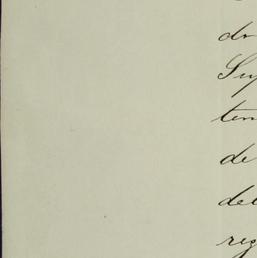 dr
Sup
ten
de
del
reg